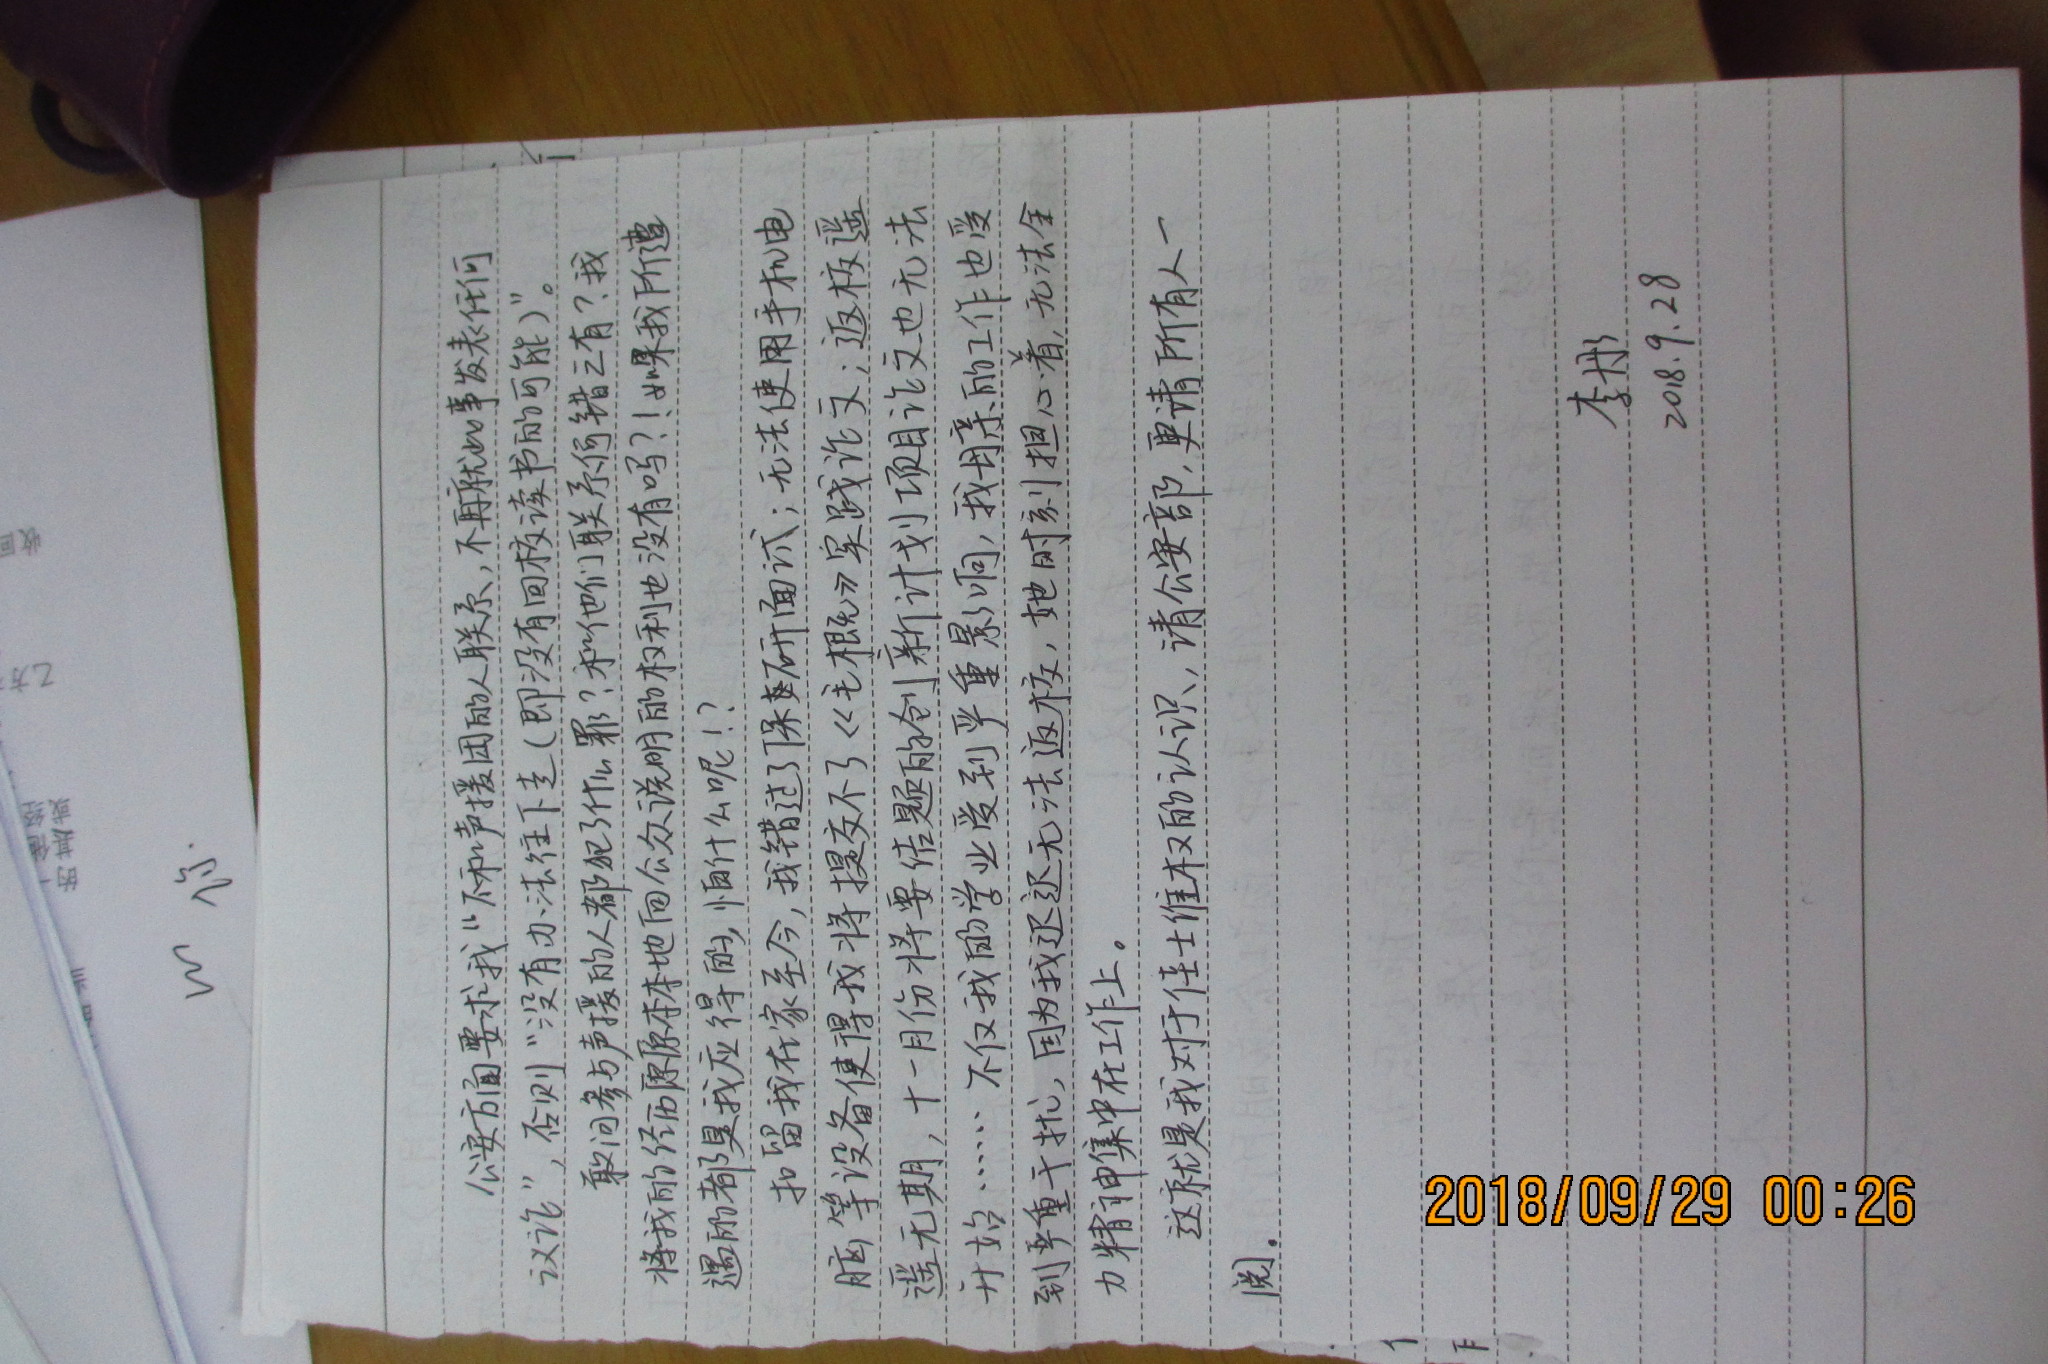 公安方面要求我“不和声援团的人联系，不再就此事发表任何
议论”，否则“没有办法往下走（即没有回校读书的可能）”。
敢问参与声援的人都犯了什么罪？和他们联系何错之有？我
将我的经历原原本本地向公众说明的权利也没有吗？！如果我所遭
遇的都是我应得的，怕什么呢！？
扣留我在家至今，我错过了保研面试；无法使用手机电
脑等设备使得我将提交不了《毛概》实践论文；返校遥
遥无期，十一月份将要结题的创新计划项目论文也无法
开始……不仅我的学业受到严重影响，我母亲的工作也受
到严重干扰，因为我迟迟无法返校，她时刻担心着，无法全
力精神集中在工作上。
这就是我对于佳士维权的认识，请公安部，更请所有人一
阅。
李彤
2018.9.28
乙方
2018/09/29 00:26